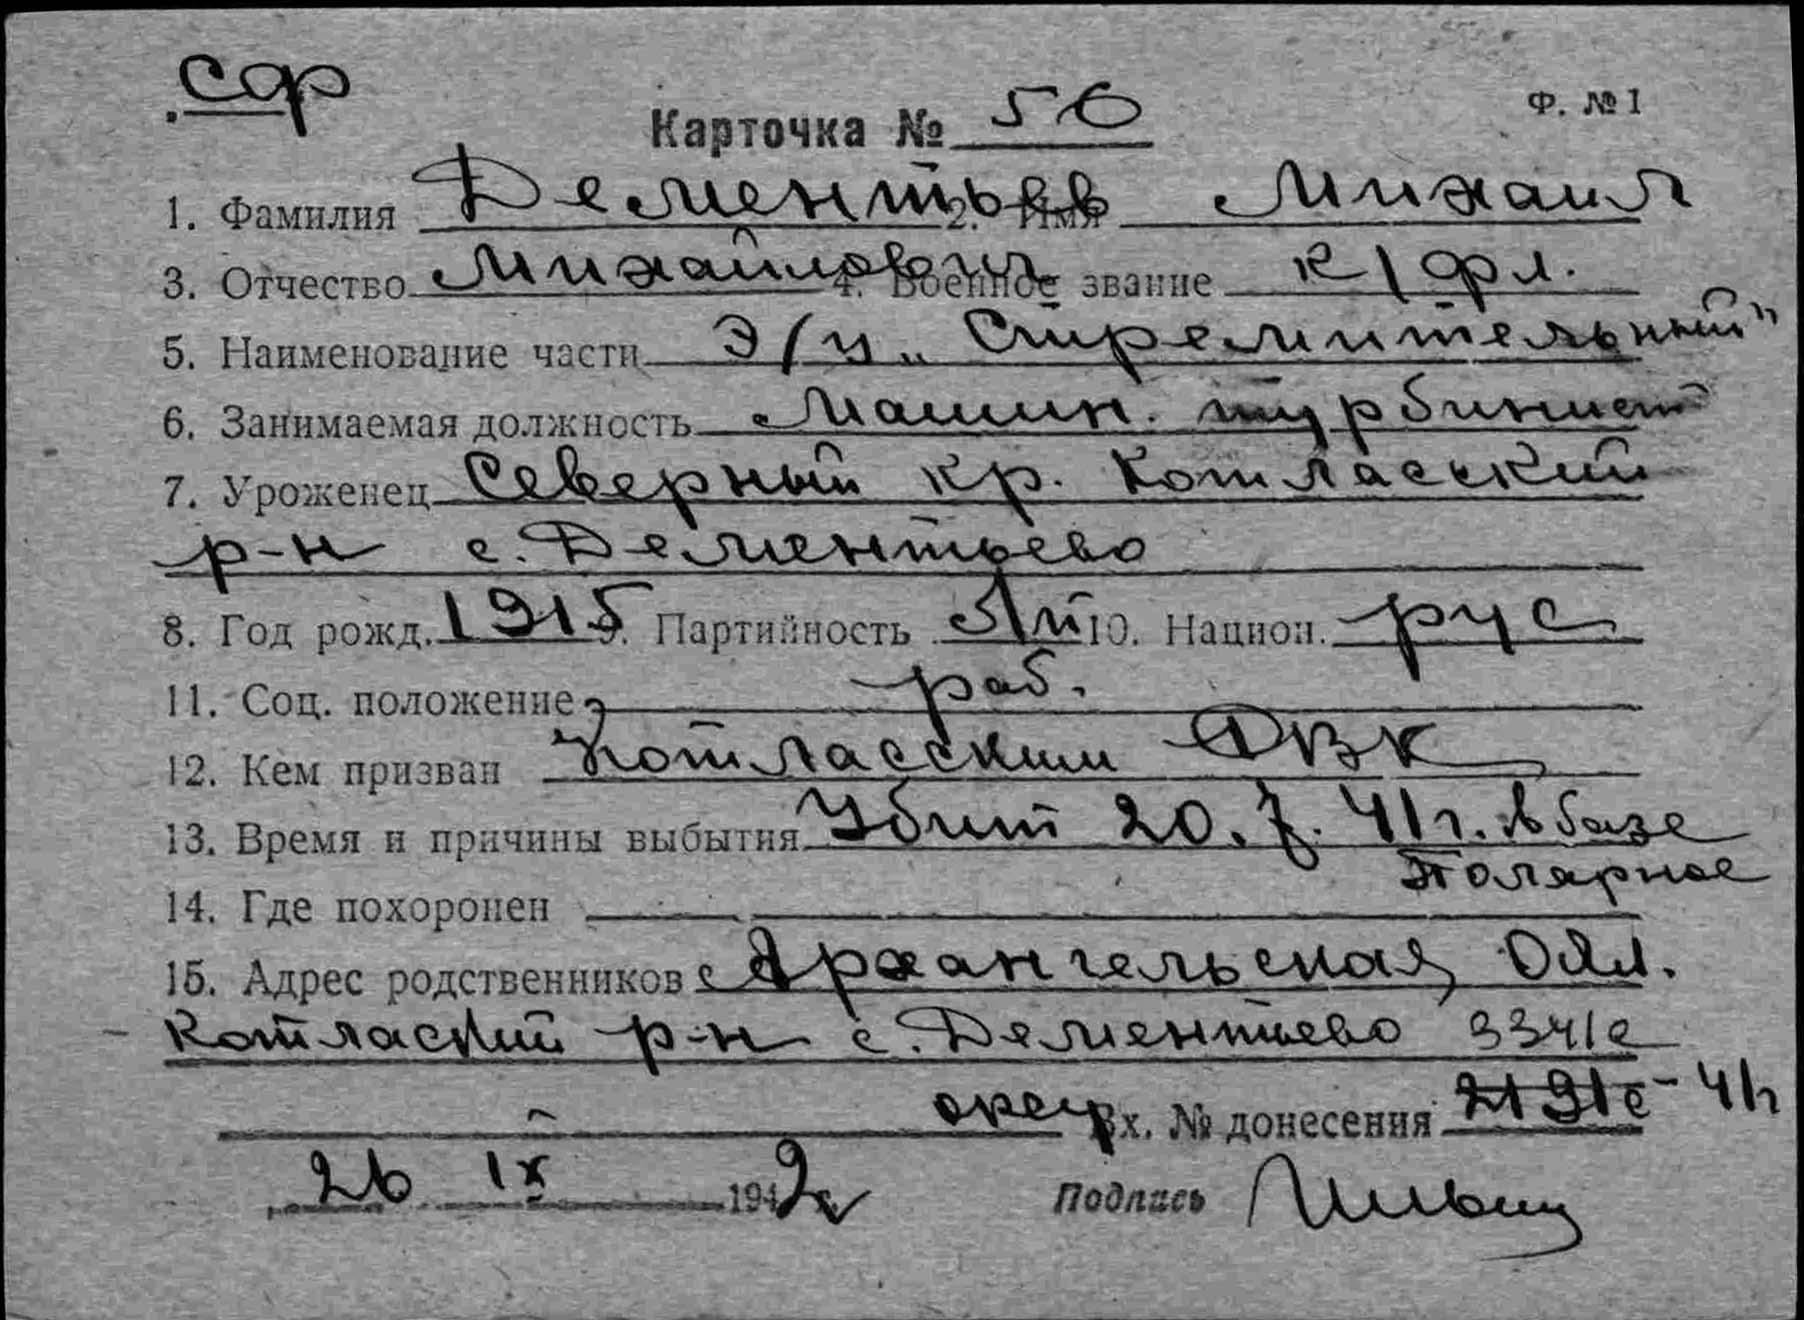 СФ
Карточка № 56 Ф. № 1
1. Фамилия Дементьев 2. Имя Михаил
3. Отчество Михайлович 4. Военное звание к/фл.
5. Наименование части Э/м „Стремительный"
6. Занимаемая должность Машин. турбинист
7. Уроженец Северный кр. Котласский
р-н с. Дементьево
8. Год рожд. 1915 9. Партийность 10. Национ. рус
11. Соц. положение раб.
12. Кем призван Котласским РВК
13. Время и причины выбытия Убит 20.7.41г. в базе
Полярное
14. Где похоронен
15. Адрес родственников Архангельская Обл.
Котлаский р-н с. Дементьево 3341с
Вх. № донесения 2191с - 41г
26 IX 1942 Подпись